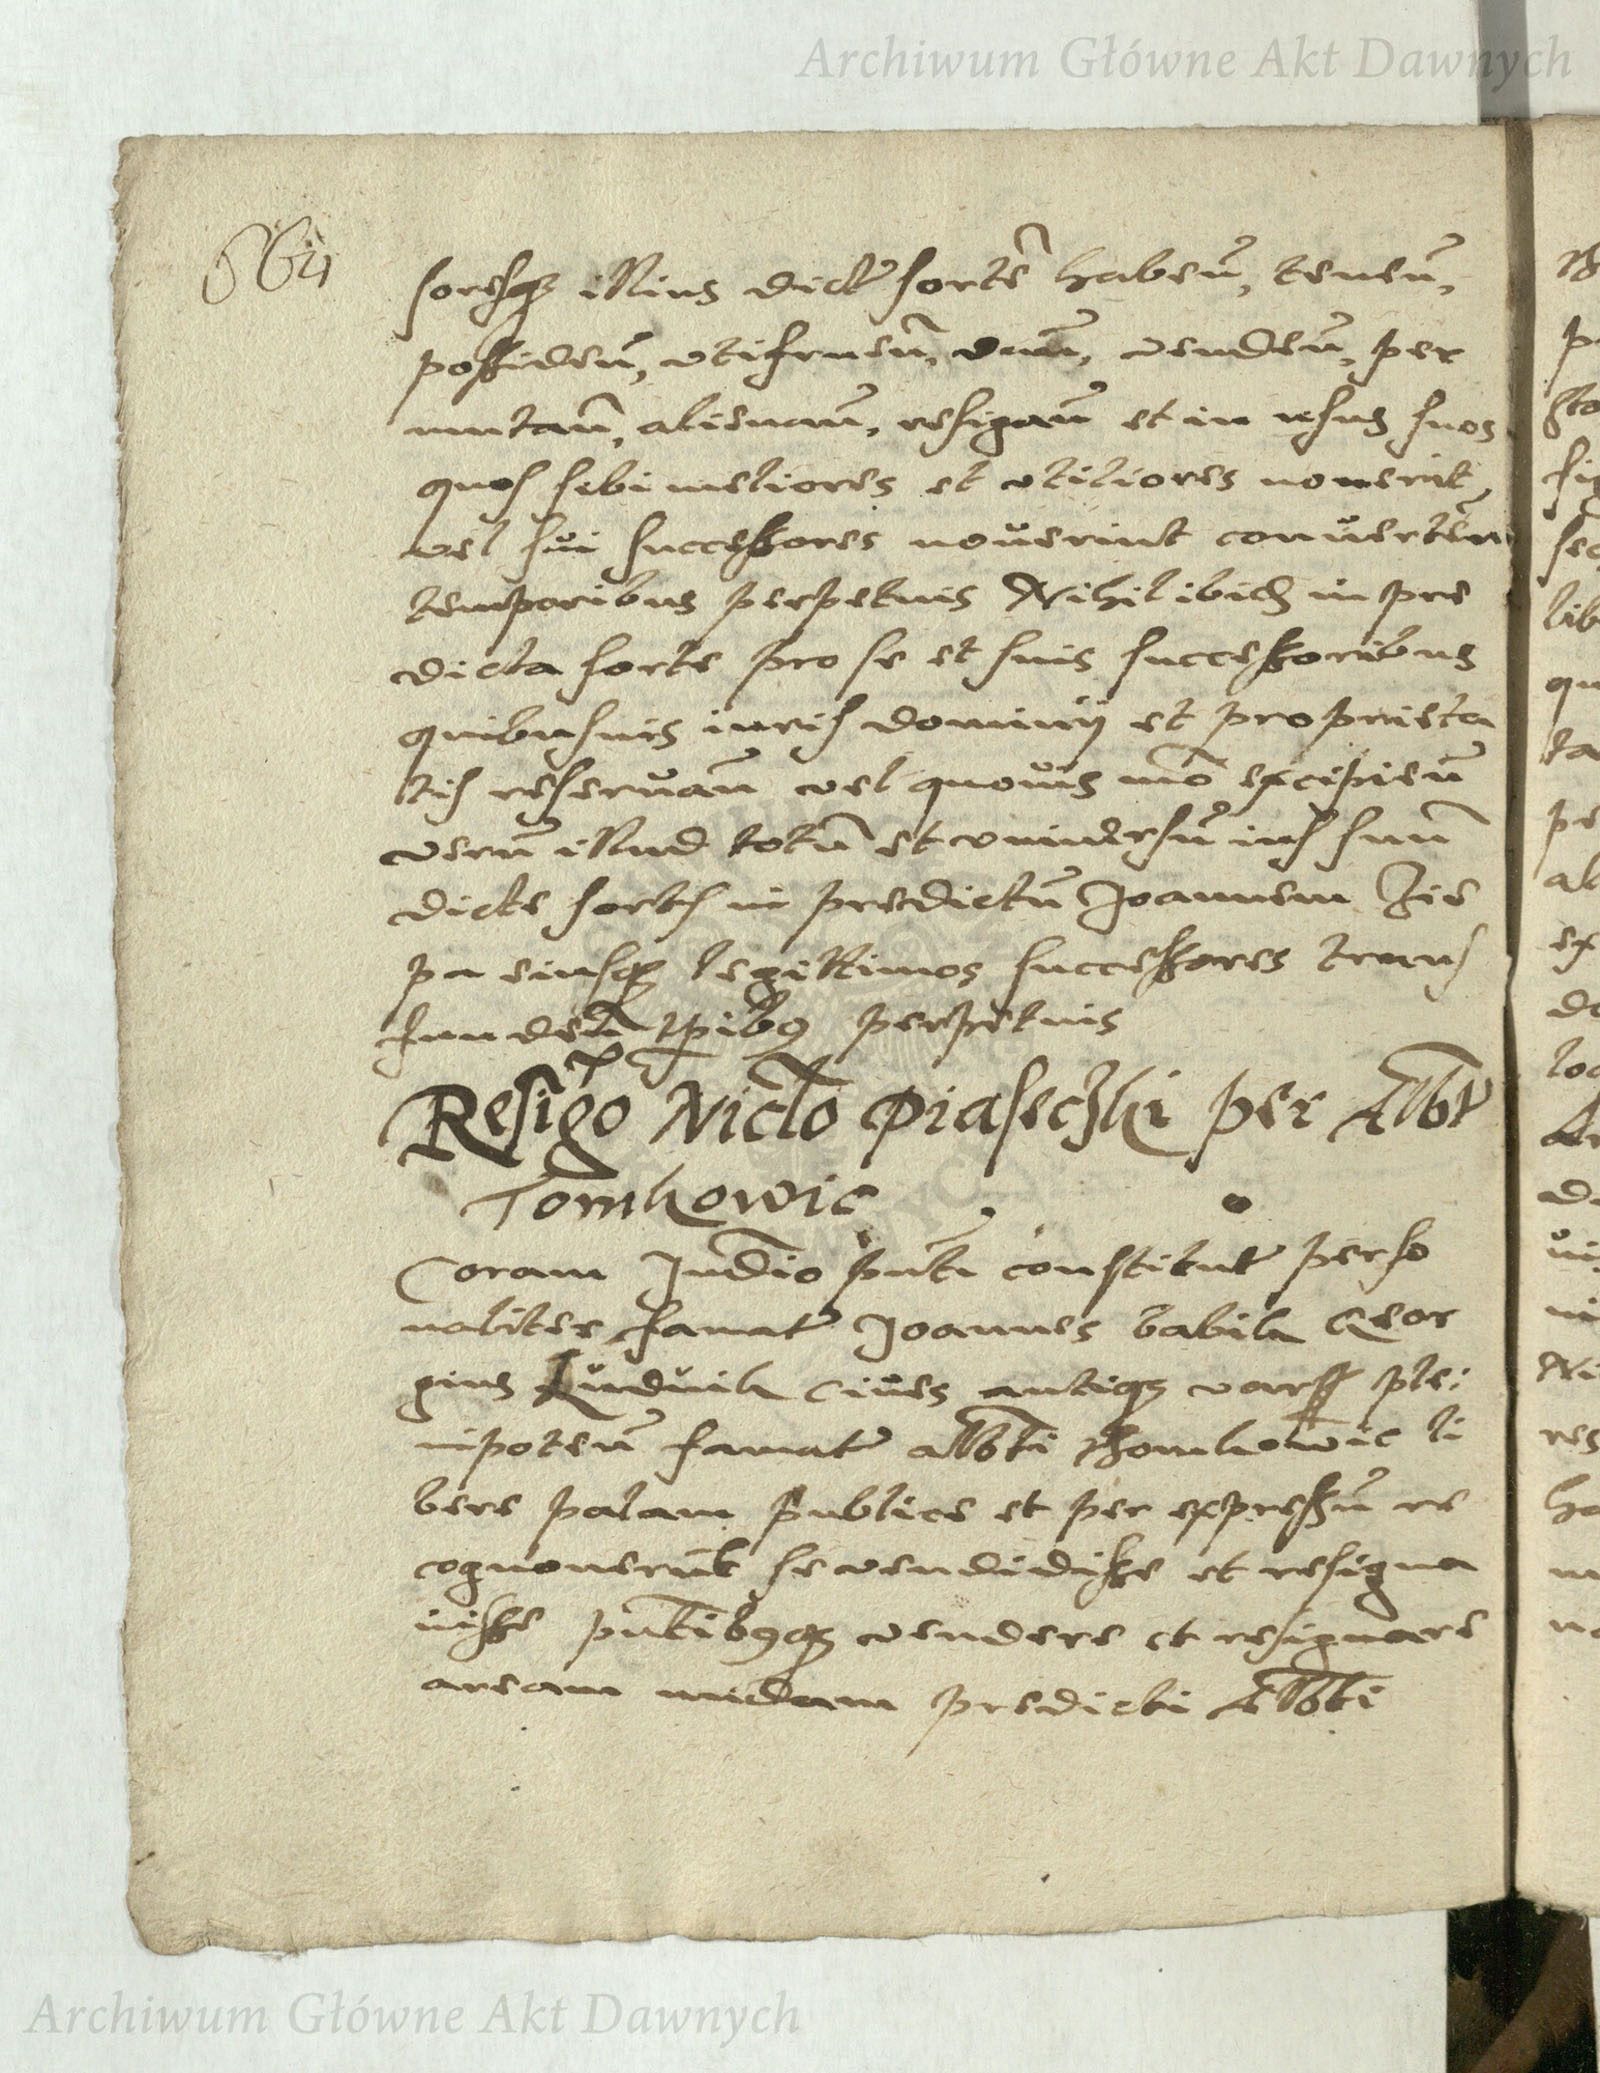 Archiwum Główne Akt Dawnych
664
soresq illius dicte sortē habeū, teneū,
possideū, utifrueñ, dañ, vendeū, per
mutañ, alienañ, resigañ et in usus suos
quos sibi meliores et utiliores noverit
vel sui successores noverint converteñ
temporibus perpetuis Nihil ibid in pre
dicta sorte pro se et suis successoribus
quibusvis iuris dominij et proprieta
tis reservañ vel quovis mō excipieñ
verū illud totū et universū ius suū
dicte sortis in predictū Joannem
pa eiusq legittimos successores trans
fundeñ tpibq perpetuis
Resigō Nicłō Piaseczki per Albt
Tomkowic
Coram Judiō pñti constitut perso
naliter famat Joannes babik Geor
gius Ludvik cives antiq vars ple
nipoteñ famat Albti Thomkowic li
bere palam publice et per expressū re
cognoverūt se vendidisse et resigna
visse pñtibqq vendere et resignare
aream nudam predicti Albti
Archiwum Główne Akt Dawnych